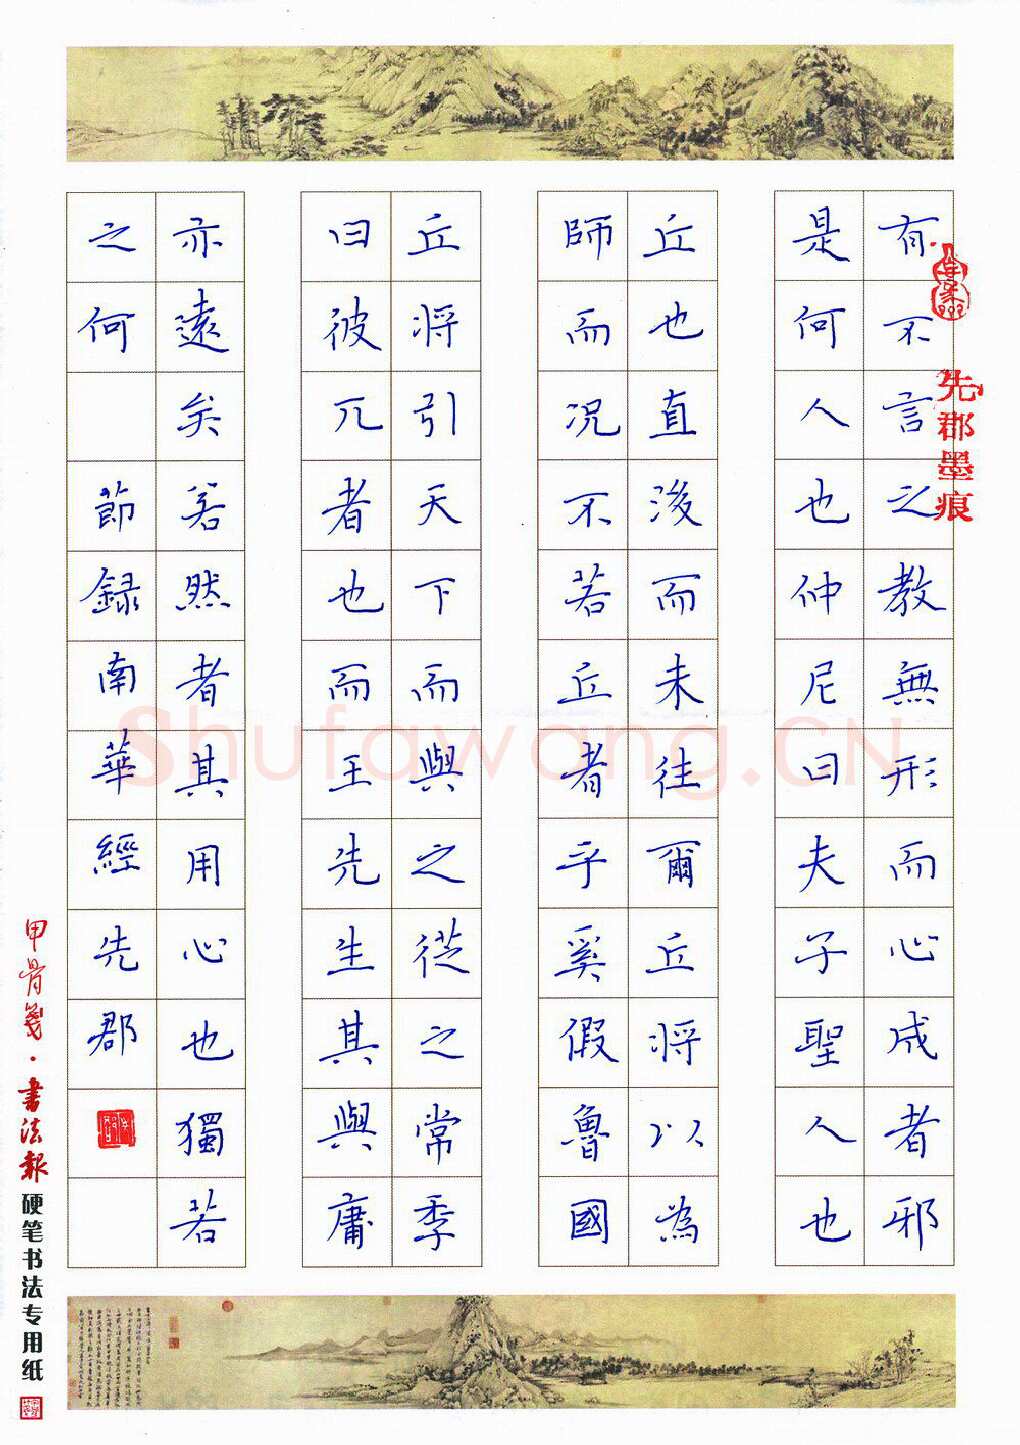 有不言之教無形而心成者邪
是何人也仲尼曰夫子聖人也
丘也直後而未往爾丘將以為
師而况不若丘者乎奚假魯國
丘將引天下而與之從之常季
曰彼兀者也而王先生其與庸
亦遠矣若然者其用心也獨若
之何
節録南華經先郡
先郡墨痕
甲骨笺·書法報硬笔书法专用纸
Shufawang.CN